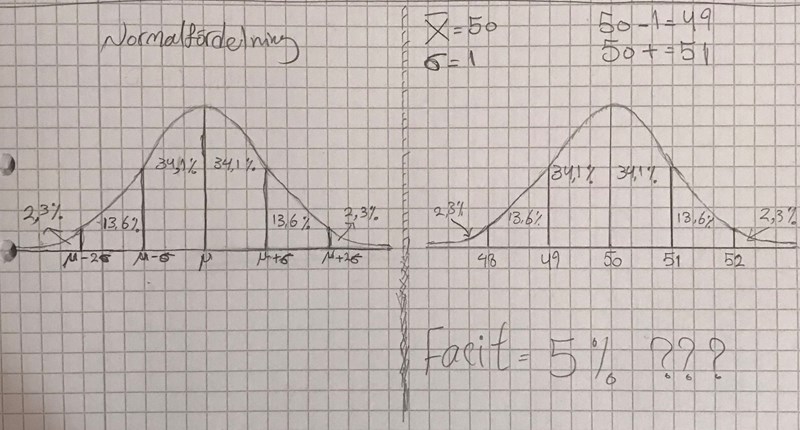 Normalfördelning
34,1% 34,1%
2,3% 13,6% 13,6% 2,3%
μ-2σ μ-σ μ μ+σ μ+2σ
X̄=50
σ=1
50-1=49
50+=51
34,1% 34,1%
2,3% 13,6% 13,6% 2,3%
48 49 50 51 52
Facit = 5% ???